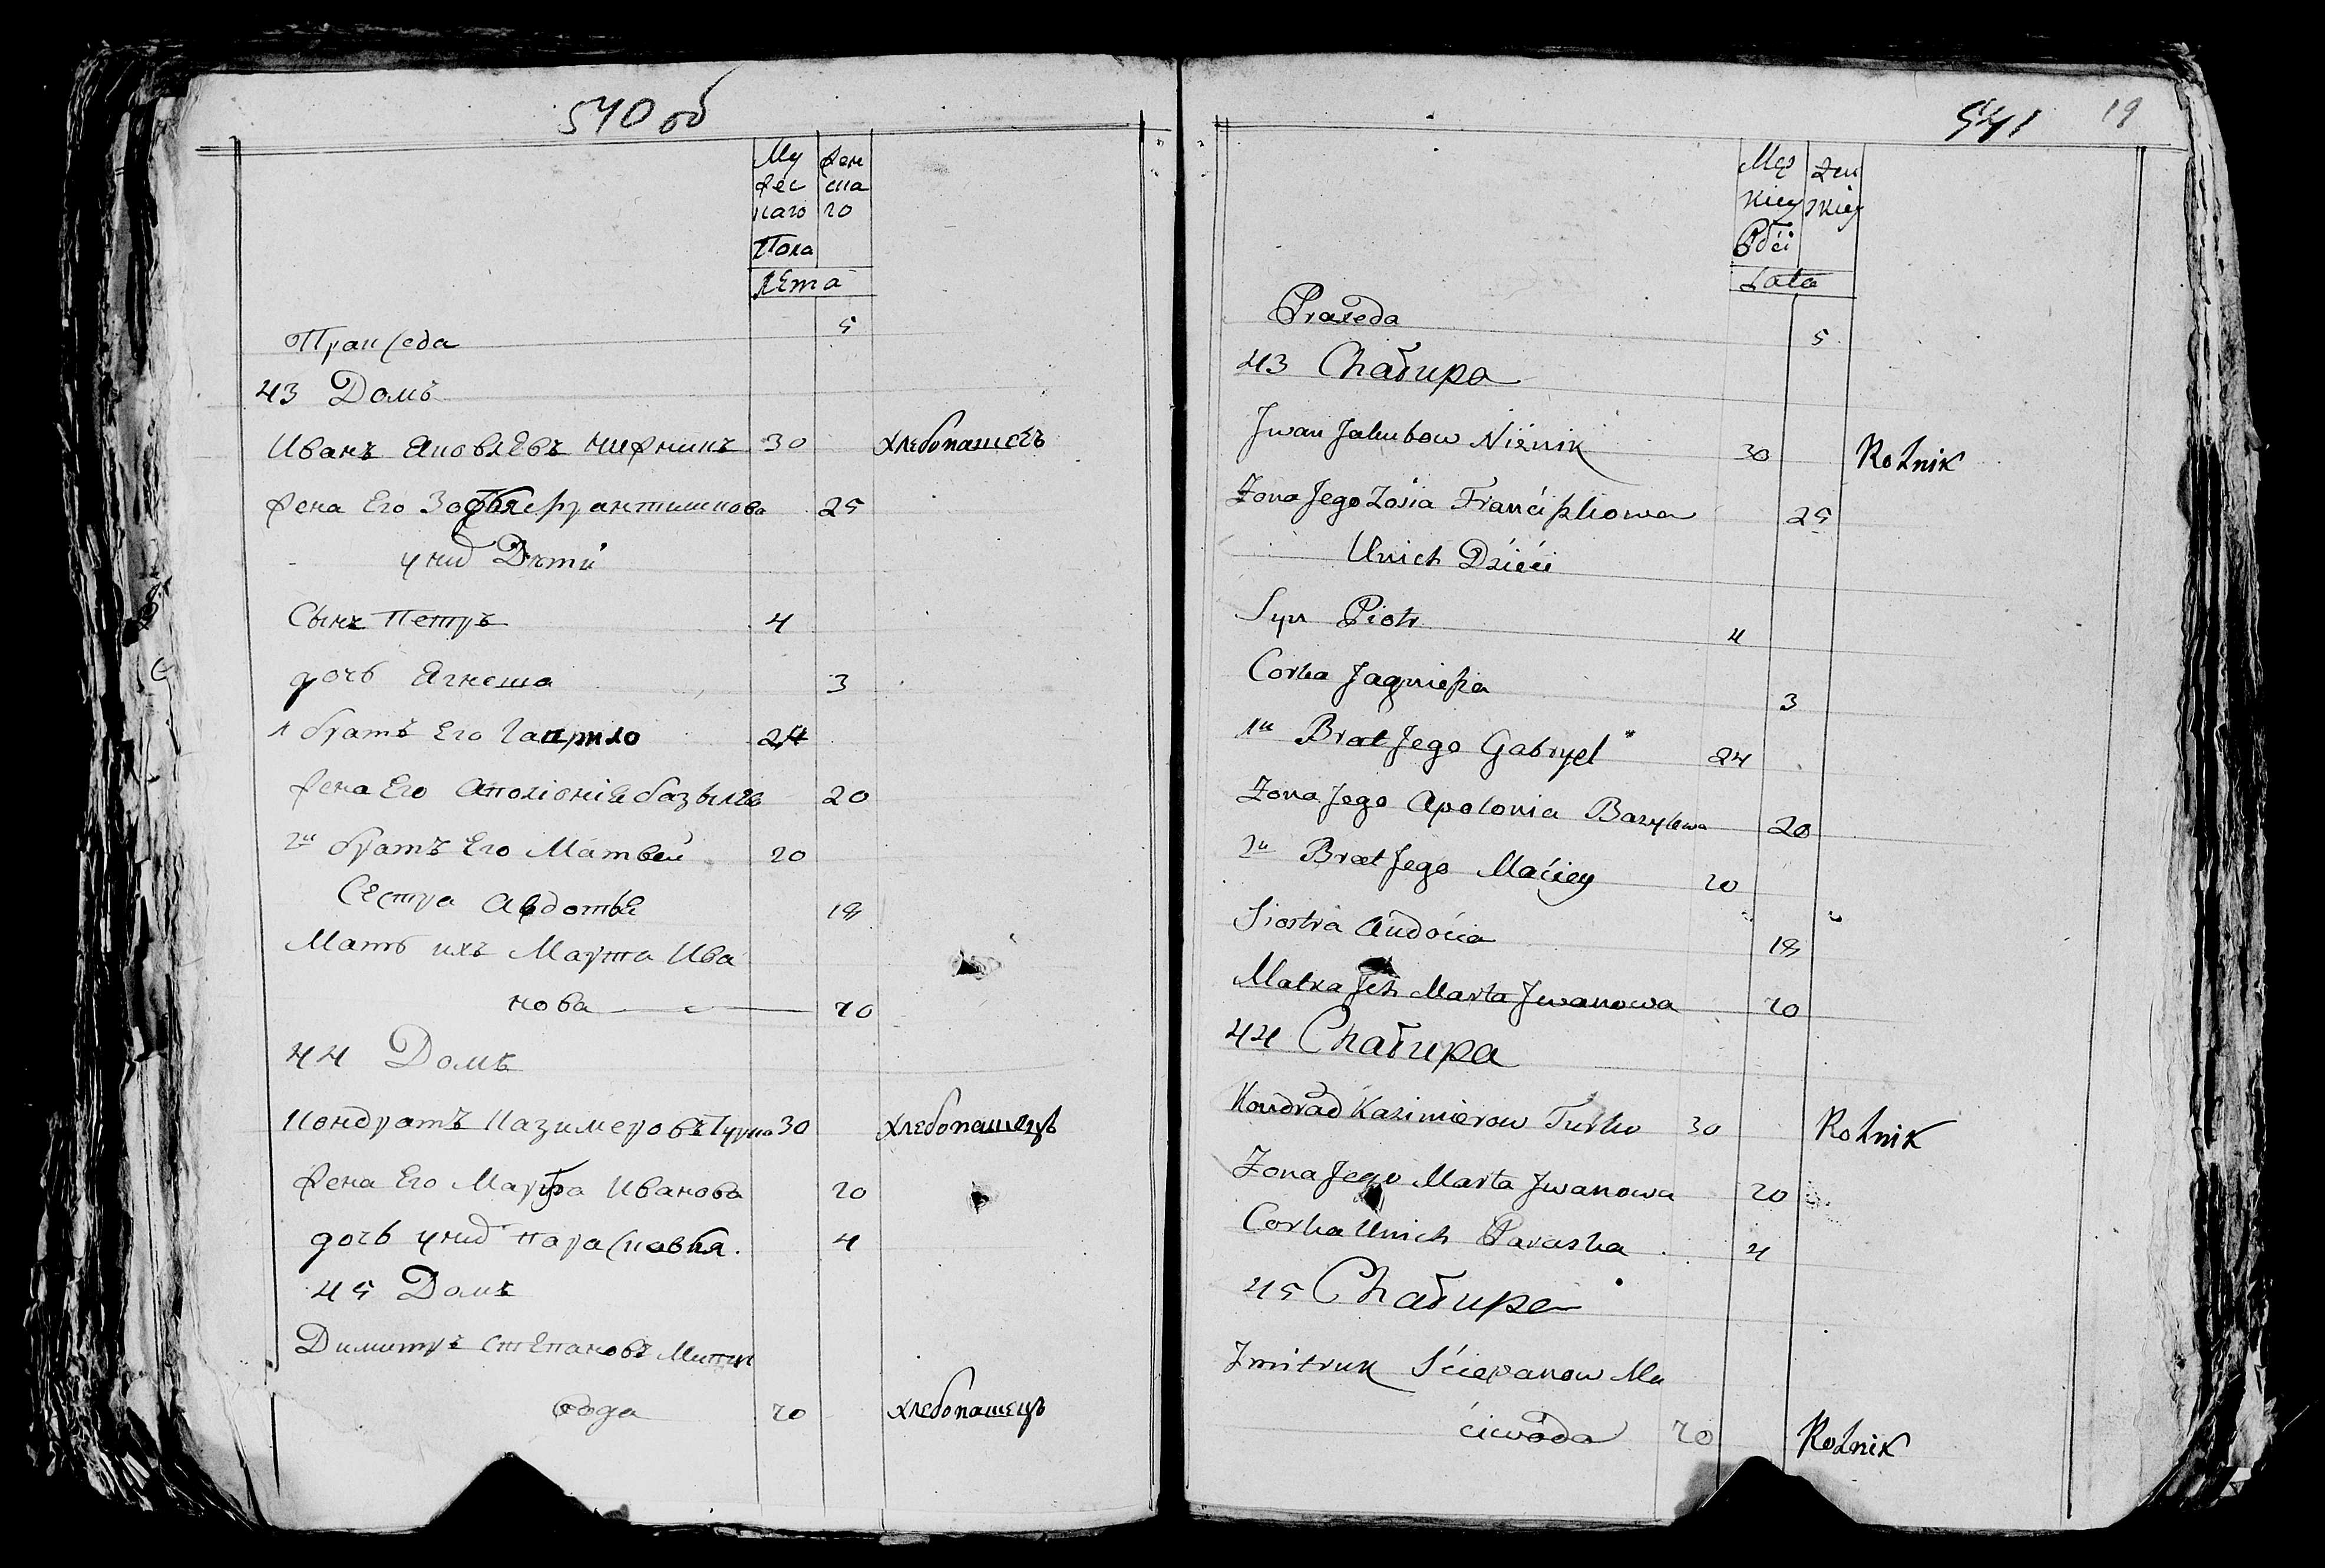 540 об
Му
жес
каго
Жен
ска
го
Пола
Лета
Праксeда 5
43 Домъ
Иванъ Яковлевъ Нижникъ 30 хлебопашецъ
Жена Его Зофья Франтишкова 25
у них Дети
Сынъ Петръ 4
дочь Ягнеша 3
1 братъ Его Гаврило 24
Жена Его Аполіонія базылева 20
2й братъ Его Матвей 20
Сестра Авдотья 18
Мать ихъ Марта Ива
нова 70
44 Домъ
Кондратъ Казимеровъ Турко 30 хлебопашецъ
Жена Его Марта Иванова 20
дочь у них Парасковья 4
45 Домъ
Димитръ Степановъ
70 хлебопашецъ
541 19
Męs
kiey
Żen
skiey
Płci
Lata
Praxeda 5
43 Chałupa
Jwan Jakubow Niżnik 30 Rolnik
Żona Jego Zośia Franćiszkowa 25
Unich Dźiéći
Syn Piotr 4
Corka Jagniesza 3
1n Brat Jego Gabryel 24
Żona Jego Apolonia Bazylewa 20
2n Brat Jego Maćiey 20
Siostra Audoćia 18
Matka Jch Marta Jwanowa 70
44 Chałupa
Kondrad Kazimierow Turko 30 Rolnik
Żona Jego Marta Jwanowa 20
Corka Unich Paraska 4
45 Chałupa
Zmitruk Śćiepanow Ma
ćiewoda 70 Rolnik